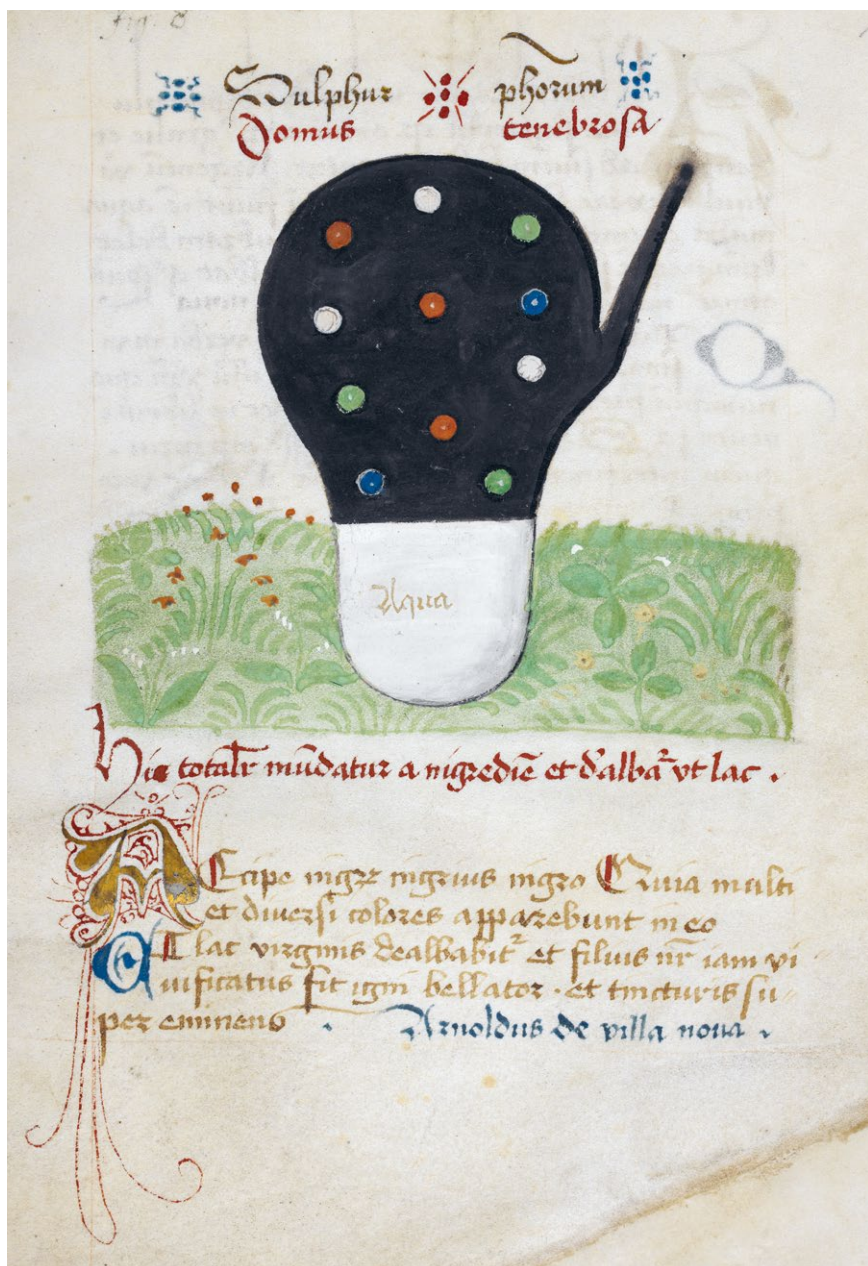 fig. 8
Sulphur phorum
Domus tenebrosa
Aqua
Hic totalr mūdatur a nigrediē et d'albat̄ vt lac .
Accipe nigrū nigrius nigro Quia multi
et diuersi colores apparebunt in eo
At lac virginis dealbabit̄ et filius nr̄ iam vi
uificatus fit igni bellator . et tincturis su
per eminens . Arnoldus de villa noua .